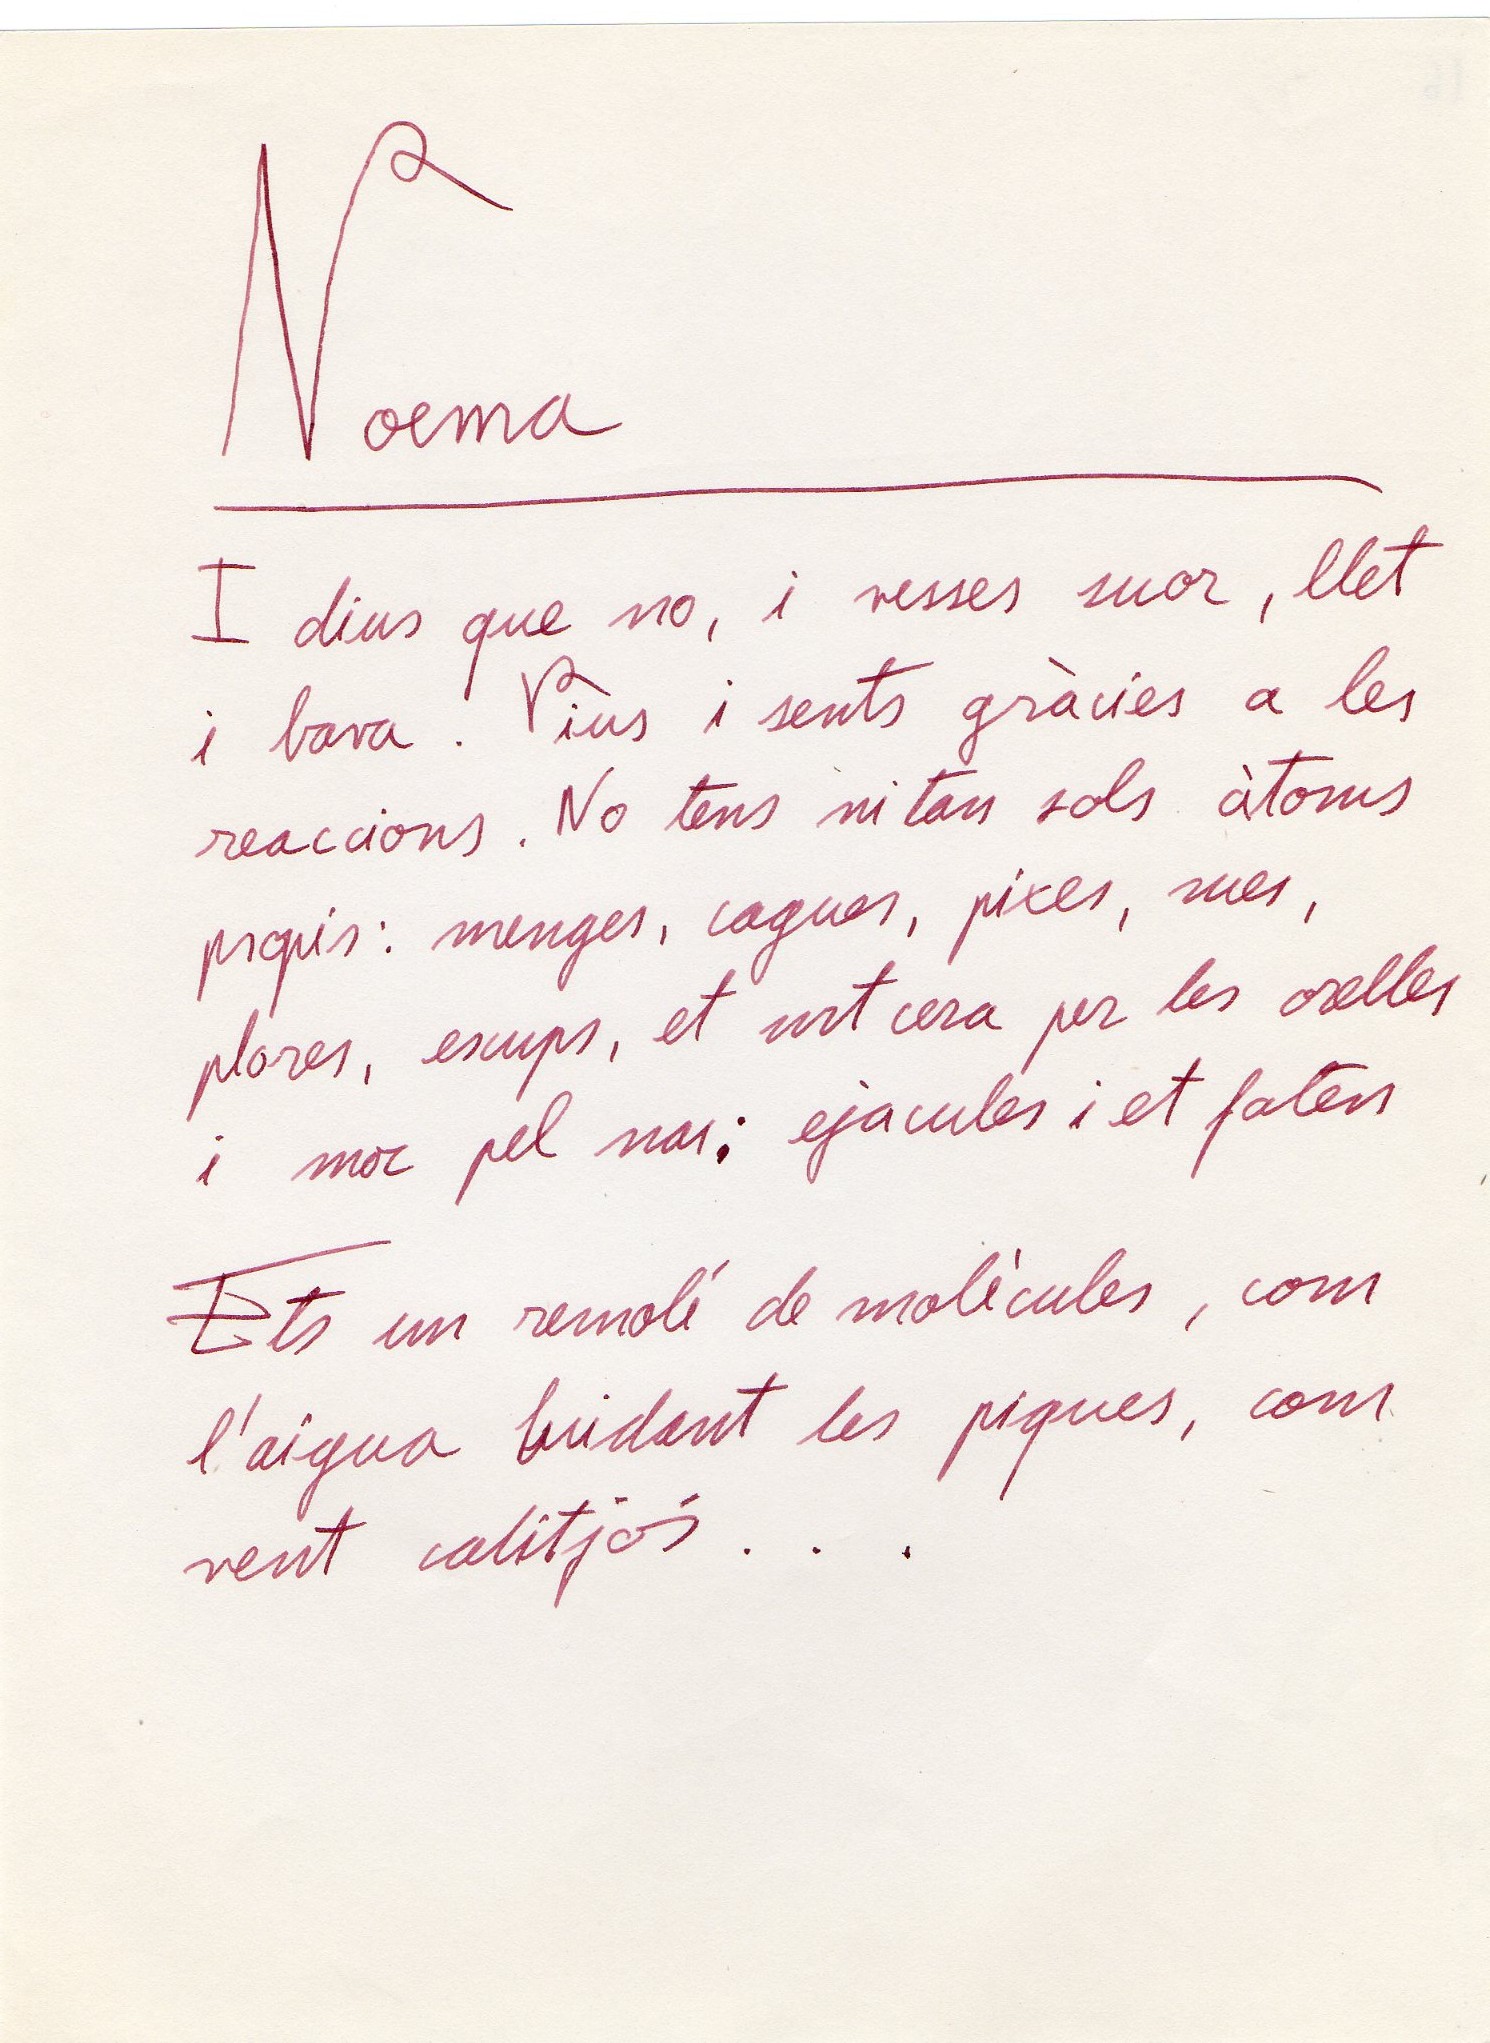 Noema
I dius que no, i vesses suor, llet
i bava. Vius i sents gràcies a les
reaccions. No tens ni tan sols àtoms
propis: menges, cagues, pixes, sues,
plores, escups, et surt cera per les orelles
i moc pel nas; ejacules i et faten
Ets un remolí de molècules, com
l'aigua buidant les piques, com
vent calitjós...